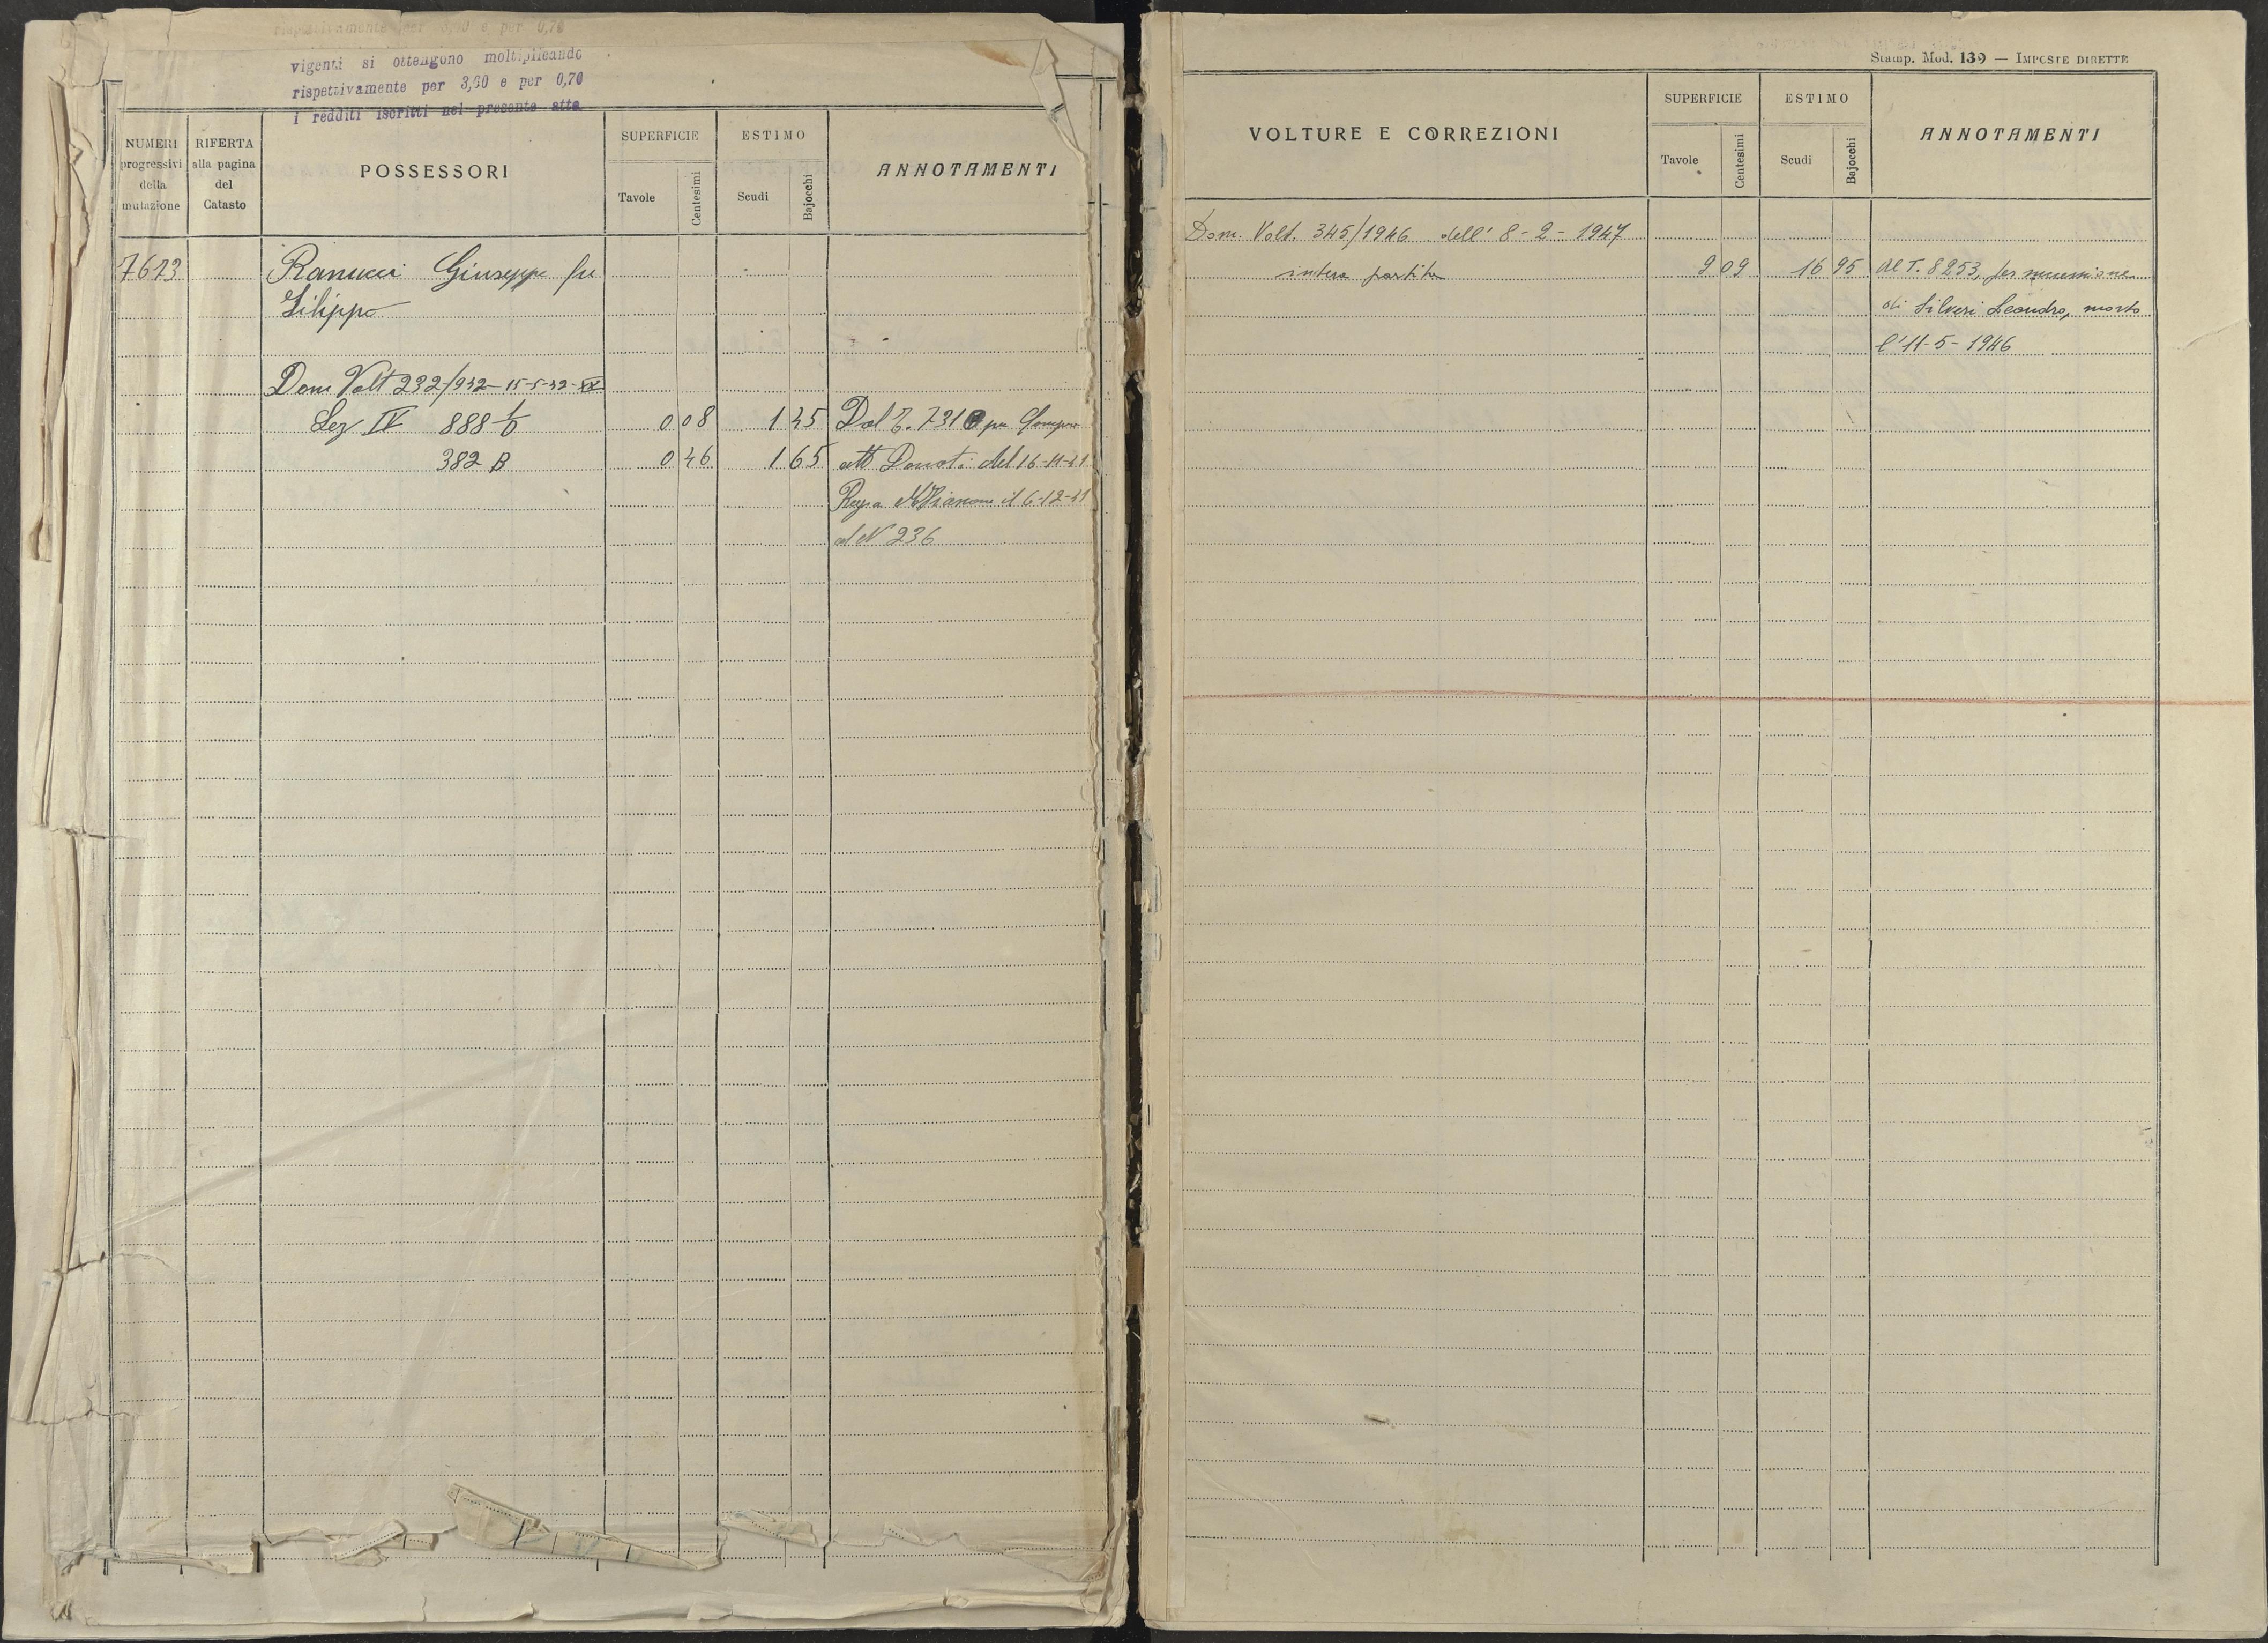 rispettivamente per 3,60 e per 0,70
vigenti si ottengono moltiplicando
rispettivamente per 3,60 e per 0,70
i redditi iscritti nel presente atto
NUMERI progressivi della mutazione
RIFERTA alla pagina del Catasto
POSSESSORI
SUPERFICIE
Tavole
Centesimi
ESTIMO
Scudi
Bajocchi
ANNOTAMENTI
7613 Ranucci Giuseppe fu
Filippo
Dom Volt 232/942 - 15-5-42-XX
Sez IV 888 1/b 0 08 1 45 Dal T. 7310 per Compra
382 B 0 46 1 65 att Donati del 16-11-41
Rega il 6-12-41
al N 236
Stamp. Mod. 139 — IMPOSTE DIRETTE
VOLTURE E CORREZIONI
SUPERFICIE
Tavole
Centesimi
ESTIMO
Scudi
Bajocchi
ANNOTAMENTI
Dom. Volt. 345/1946 dell' 8-2-1947
intera partita 9 09 16 95 Al T. 8253, per successione
di Silveri Leandro, morto
l'11-5-1946